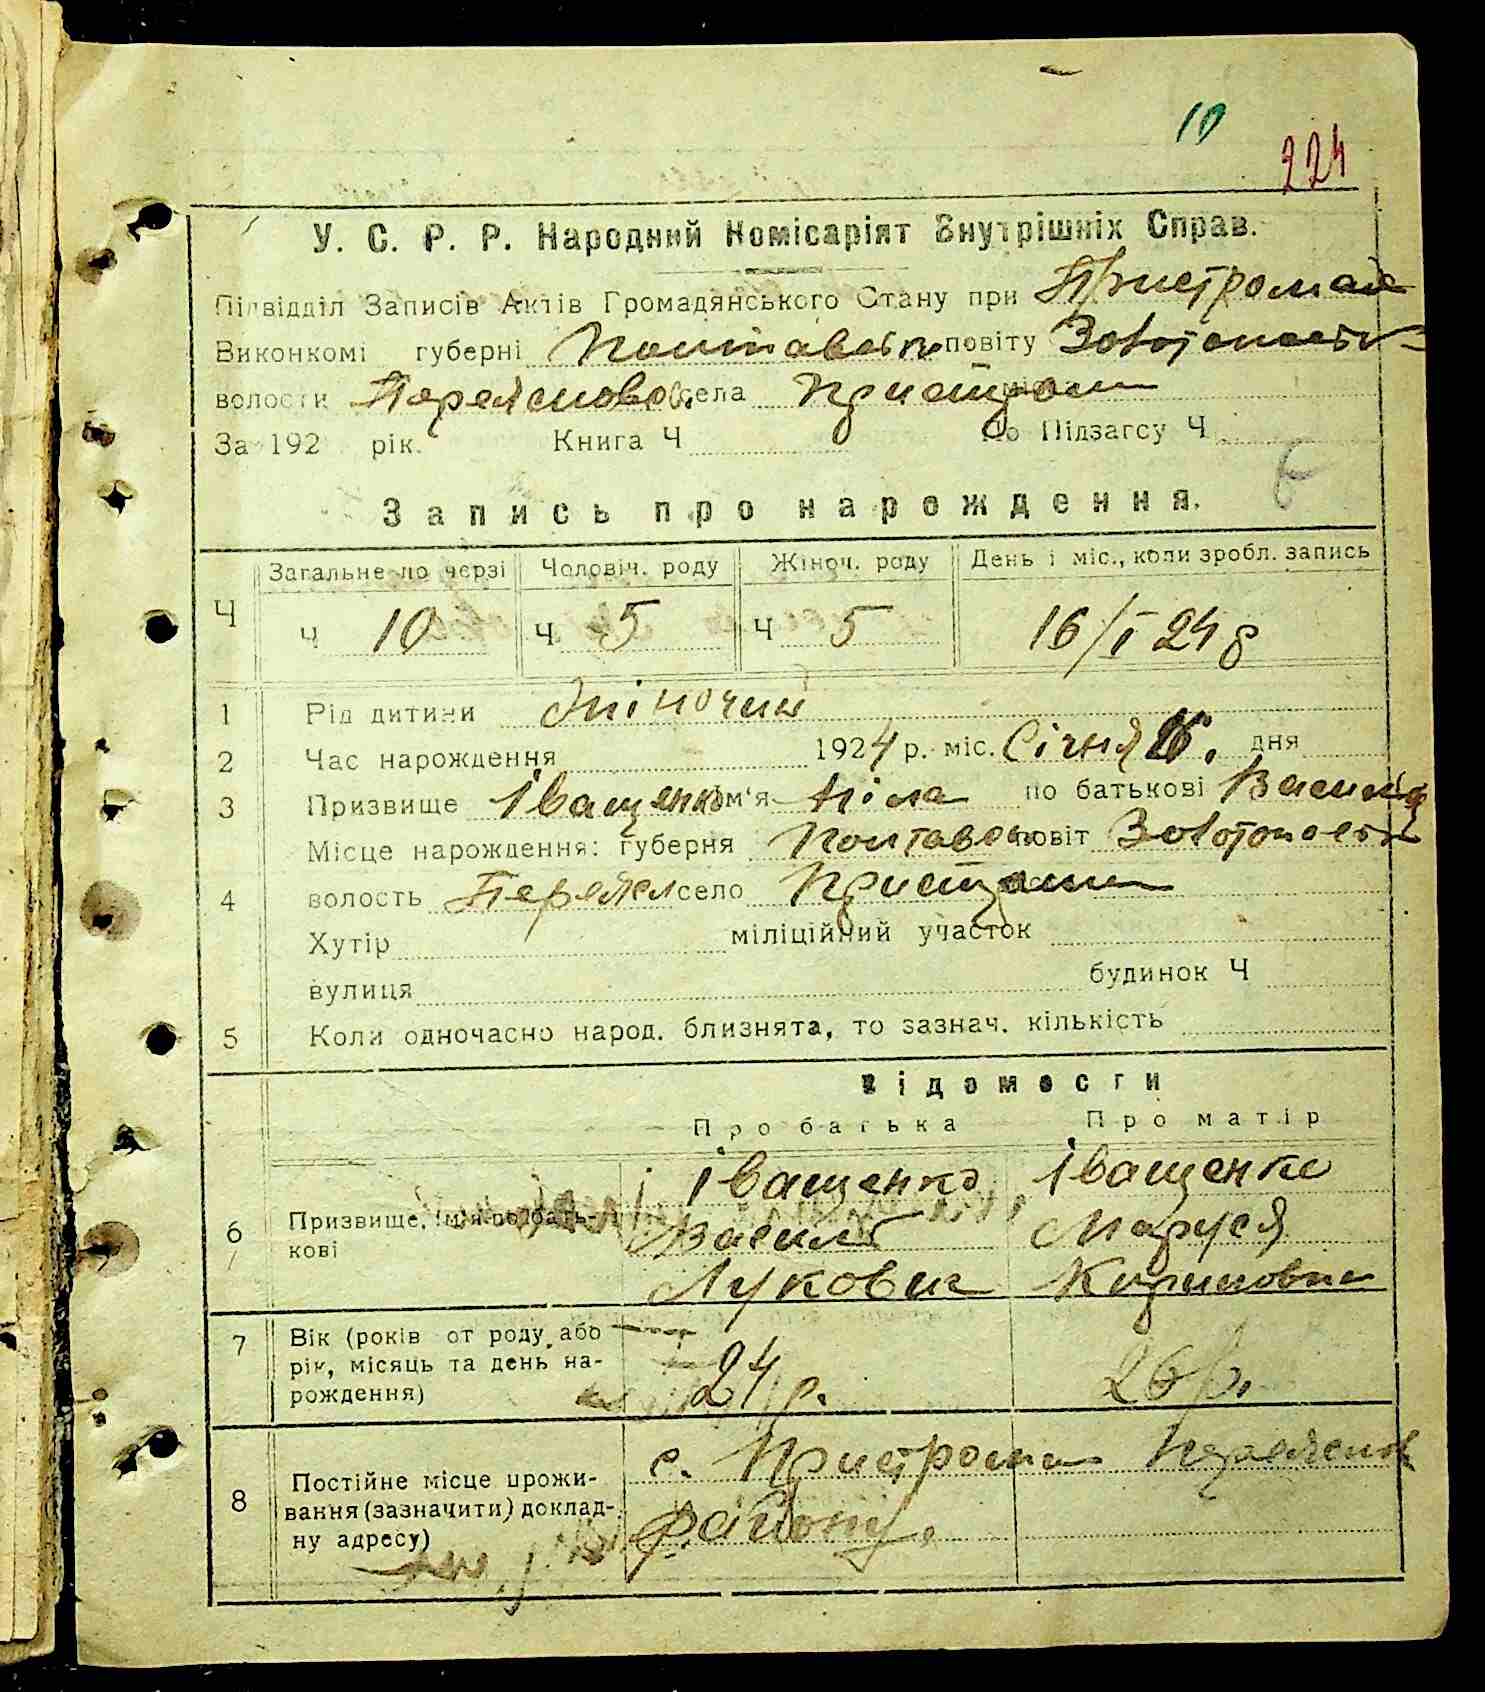 10
224
У. С. Р. Р. Народний Комісаріят Внутрішніх Справ.
Підвідділ Записів Актів Громадянського Стану при Пристромск
Виконкомі губерні Полтавськ повіту Золотоноськ
волости Переяслово села Пристром міс
За 192 рік. Книга Ч По Підзагсу Ч
Запись про нарождення.
Загальне по черзі Чоловіч. роду Жіноч. роду День і міс., коли зробл. запись
Ч Ч 10 Ч 5 Ч 5 16/I 24 р
1 Рід дитини Жіночий
2 Час нарождення 1924 р. міс. Січня дня
3 Призвище Іващенко Ім'я по батькові
Місце нарождення: губерня Полтавськ повіт Золотоноськ
4 волость Переясл село Пристроми
Хутір міліційний участок
вулиця будинок Ч
5 Коли одночасно народ. близнята, то зазнач. кількість
Відомости
Про батька Про матір
Іващенко Іващенко
6 Призвище, імя по бать- Василь Маруся
кові
Лукович Кириловна
7 Вік (років от роду, або
рік, місяць та день на- 24 р. 26 р.
рождення)
с. Пристроми Переяслов
8 Постійне місце прожи-
вання (зазначити) доклад- району.
ну адресу)